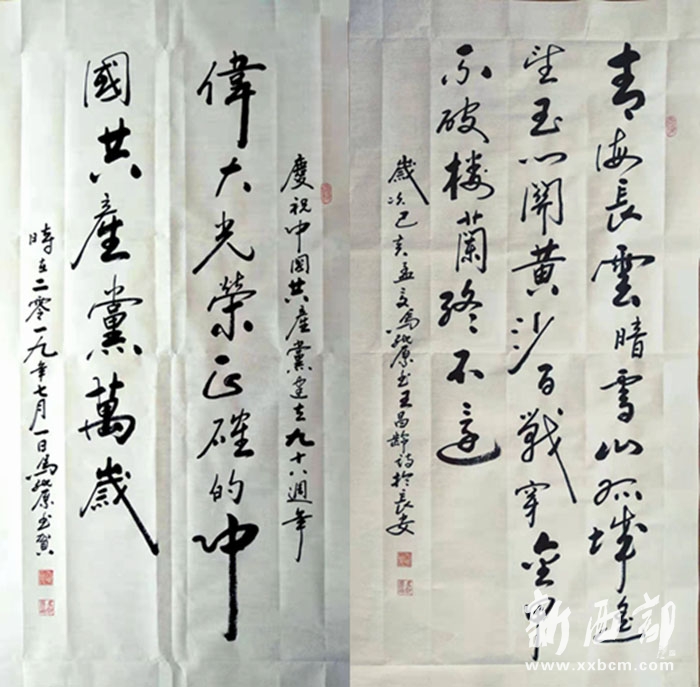 青海長雲暗雪山孤城遙
望玉門關黃沙百戰穿金甲
不破楼蘭終不還
歲次己亥孟夏馬原書王昌齡詩於長安
慶祝中國共產黨建立九十八週年
偉大光榮正確的中
國共產黨萬歲
時在二零一九年七月一日馬原書賀
新西部
www.xxbcm.com